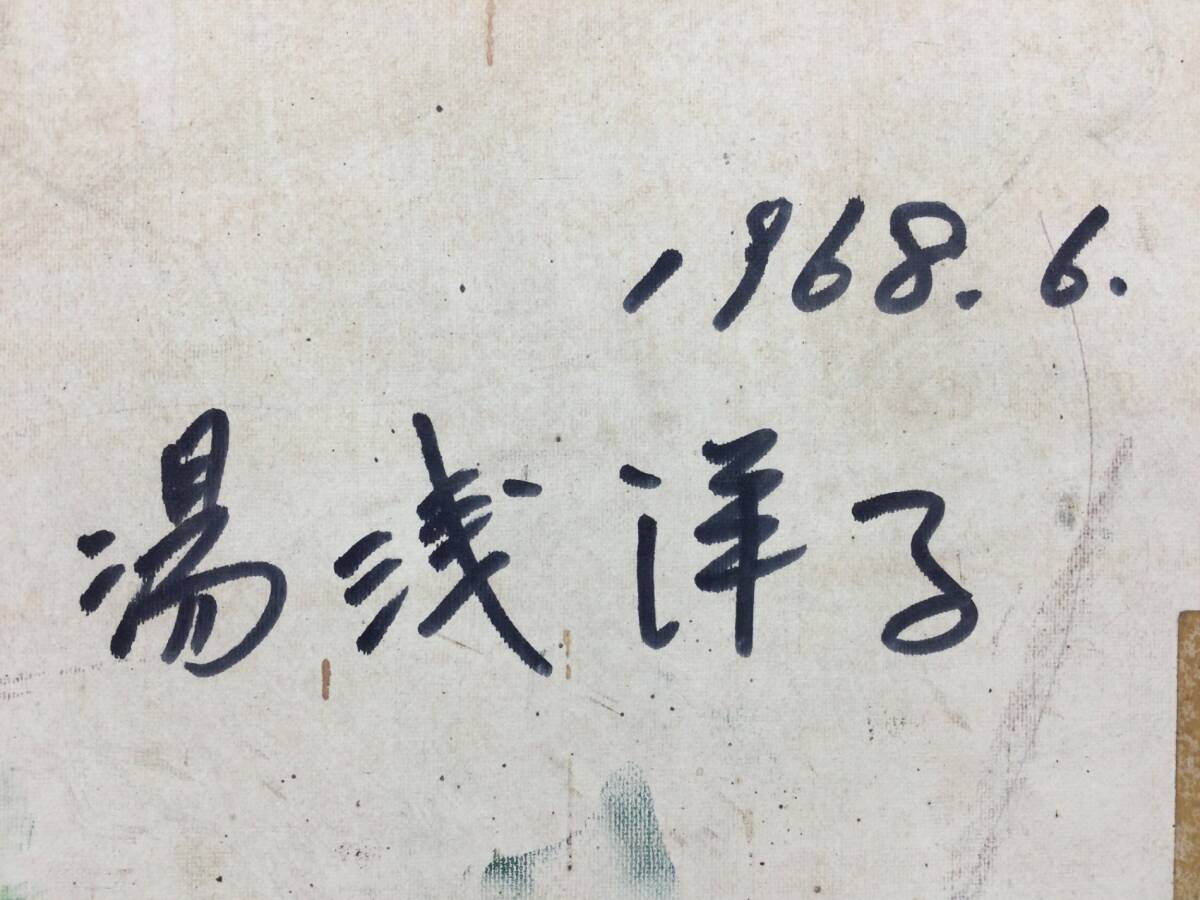 1968.6.
湯浅洋子